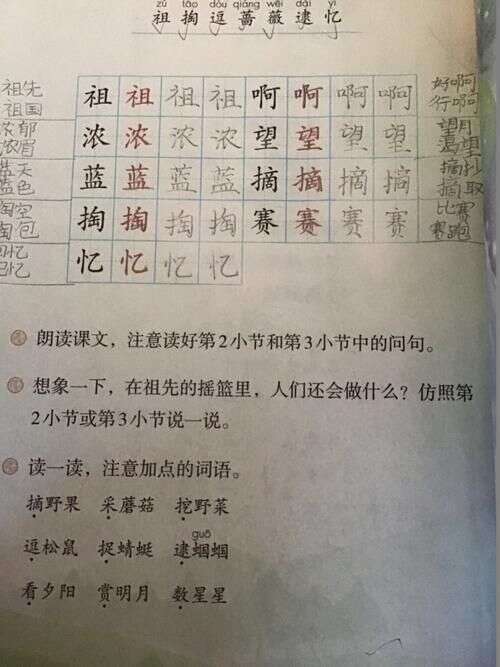 zǔ tāo dòu qiáng wēi dài yì
祖 掏 逗 蔷 薇 逮 忆
祖先 祖 祖 祖 祖 啊 啊 啊 啊 好啊
祖国 行啊
浓郁 浓 浓 浓 浓 望 望 望 望 望月
浓眉 渴望
蓝天 蓝 蓝 蓝 蓝 摘 摘 摘 摘 摘抄
蓝色 摘取
掏空 掏 掏 掏 掏 赛 赛 赛 赛 比赛
掏包 赛跑
回忆 忆 忆 忆 忆
记忆
朗读课文，注意读好第2小节和第3小节中的问句。
想象一下，在祖先的摇篮里，人们还会做什么？仿照第
2小节或第3小节说一说。
读一读，注意加点的词语。
摘野果 采蘑菇 挖野菜
guō
逗松鼠 捉蜻蜓 逮蝈蝈
看夕阳 赏明月 数星星